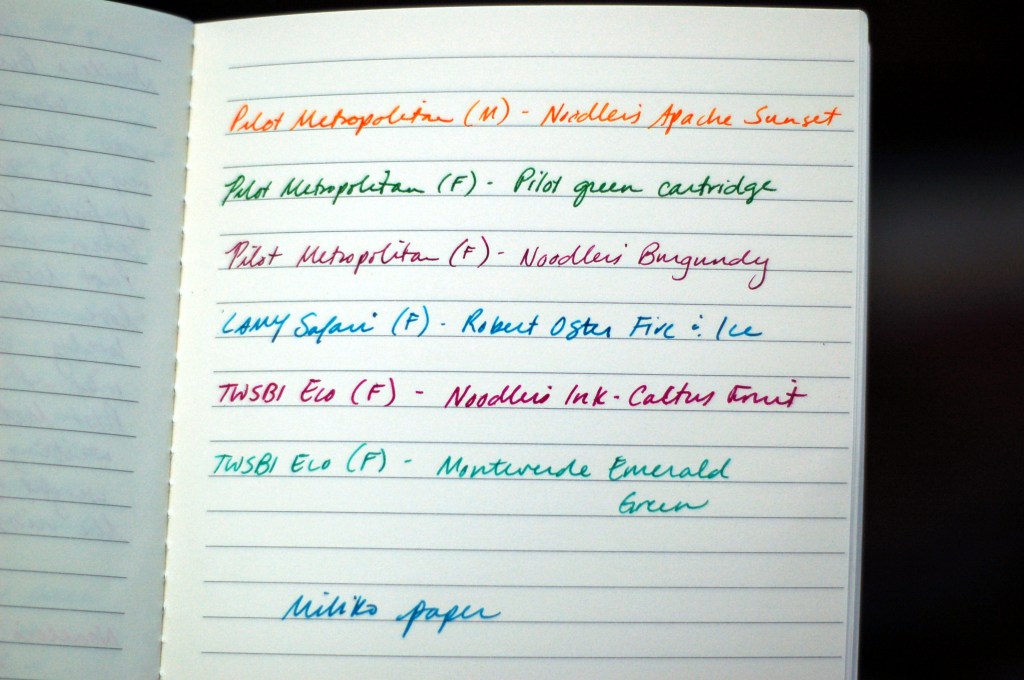 Pilot Metropolitan (M) - Noodler's Apache Sunset
Pilot Metropolitan (F) - Pilot green cartridge
Pilot Metropolitan (F) - Noodler's Burgundy
LAMY Safari (F) - Robert Oster Fire & Ice
TWSBI Eco (F) - Noodler's Ink - Cactus Fruit
TWSBI Eco (F) - Monteverde Emerald
Green
Miliko paper